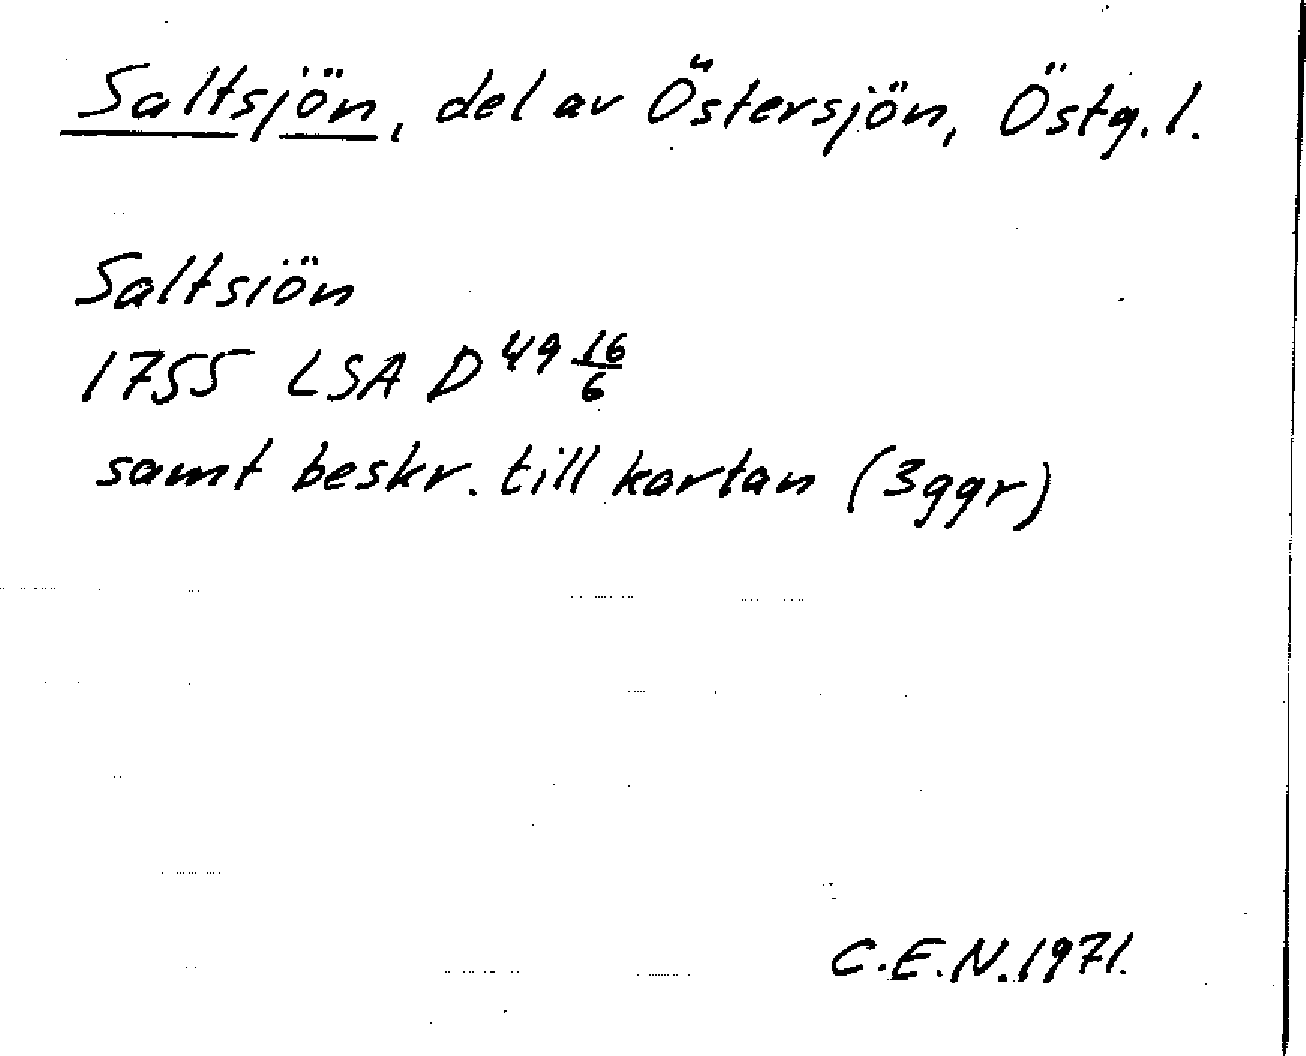 Saltsjön, del av Östersjön, Östg. l.
Saltsiön
1755 LSA D 49 16/6
samt beskr. till kartan (3ggr)
C.E.N. 1971.